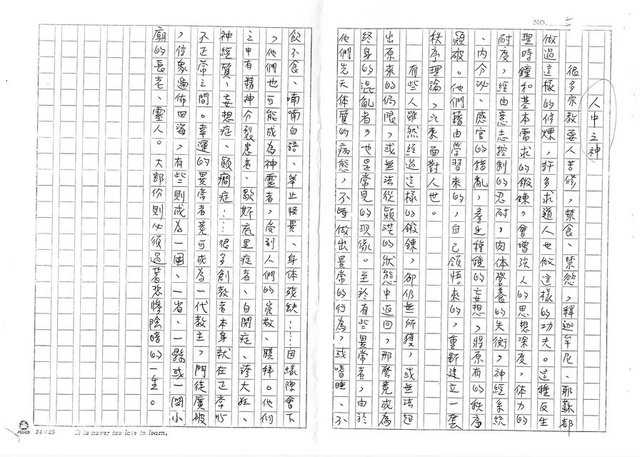 人中之神
很多宗教要人苦修，禁食、禁慾，釋迦牟尼、耶穌都
做過這樣的修煉，許多求道人也做這樣的功夫。這種反生
理時鐘和基本需求的鍛鍊，會增強人的思想深度，体力的
耐度，經由意志控制的忍耐，肉体營養的失衡，神經系統
、內分泌、感官的錯亂，產生種種的妄想，將原有的秩序
顛破。他們藉由學習來的，自己領悟來的，重新建立一套
秩序理論，以來面對人世。
有些人雖然經過這樣的鍛鍊，卻仍無所獲，或無法超
出原來的侷限，或無法從顛茫的狀態中返回，那麼竟成為
終身的混亂者，也是常見的現像。至於有些異常者，由於
他們先天体質的病態，不時做出異常的行為，或嗜睡、不
飲不食、喃喃自語、舉止怪異、身体殘缺……因緣際會下
，他們也可能成為神靈者，受到人們的崇敬、膜拜。他們
之中有精神分裂患者、歇斯底里症者、自閉症、誇大狂、
神經質、妄想症、癲癇症……提子創教者本身就在正常和
不正常之間。幸運的異常者竟可成為一代教主，門徒廣被
，信眾遍佈四海，有些則成為一國、一省、一縣或一間小
廟的長老、靈人。大部份則必須過著悲慘陰暗的一生。
24×25
It is never too late to learn.